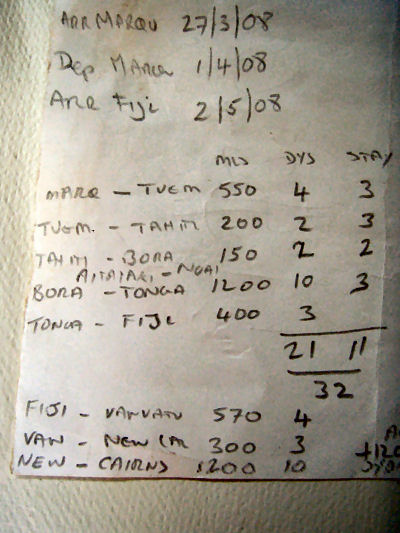 ARR MARQU 27/3/08
Dep MARQ 1/4/08
Arr Fiji 2/5/08
MLS DYS STAY
MARQ - TUEM 550 4 3
TUEM. - TAHITI 200 2 3
TAHITI - BORA 150 2 2
AITATAKI - NUAI
BORA - TONGA 1200 10 3
TONGA - FIJI 400 3
21 11
32
FIJI - VANUATU 570 4
VAN - NEW CAL 300 3
NEW - CAIRNS 1200 10